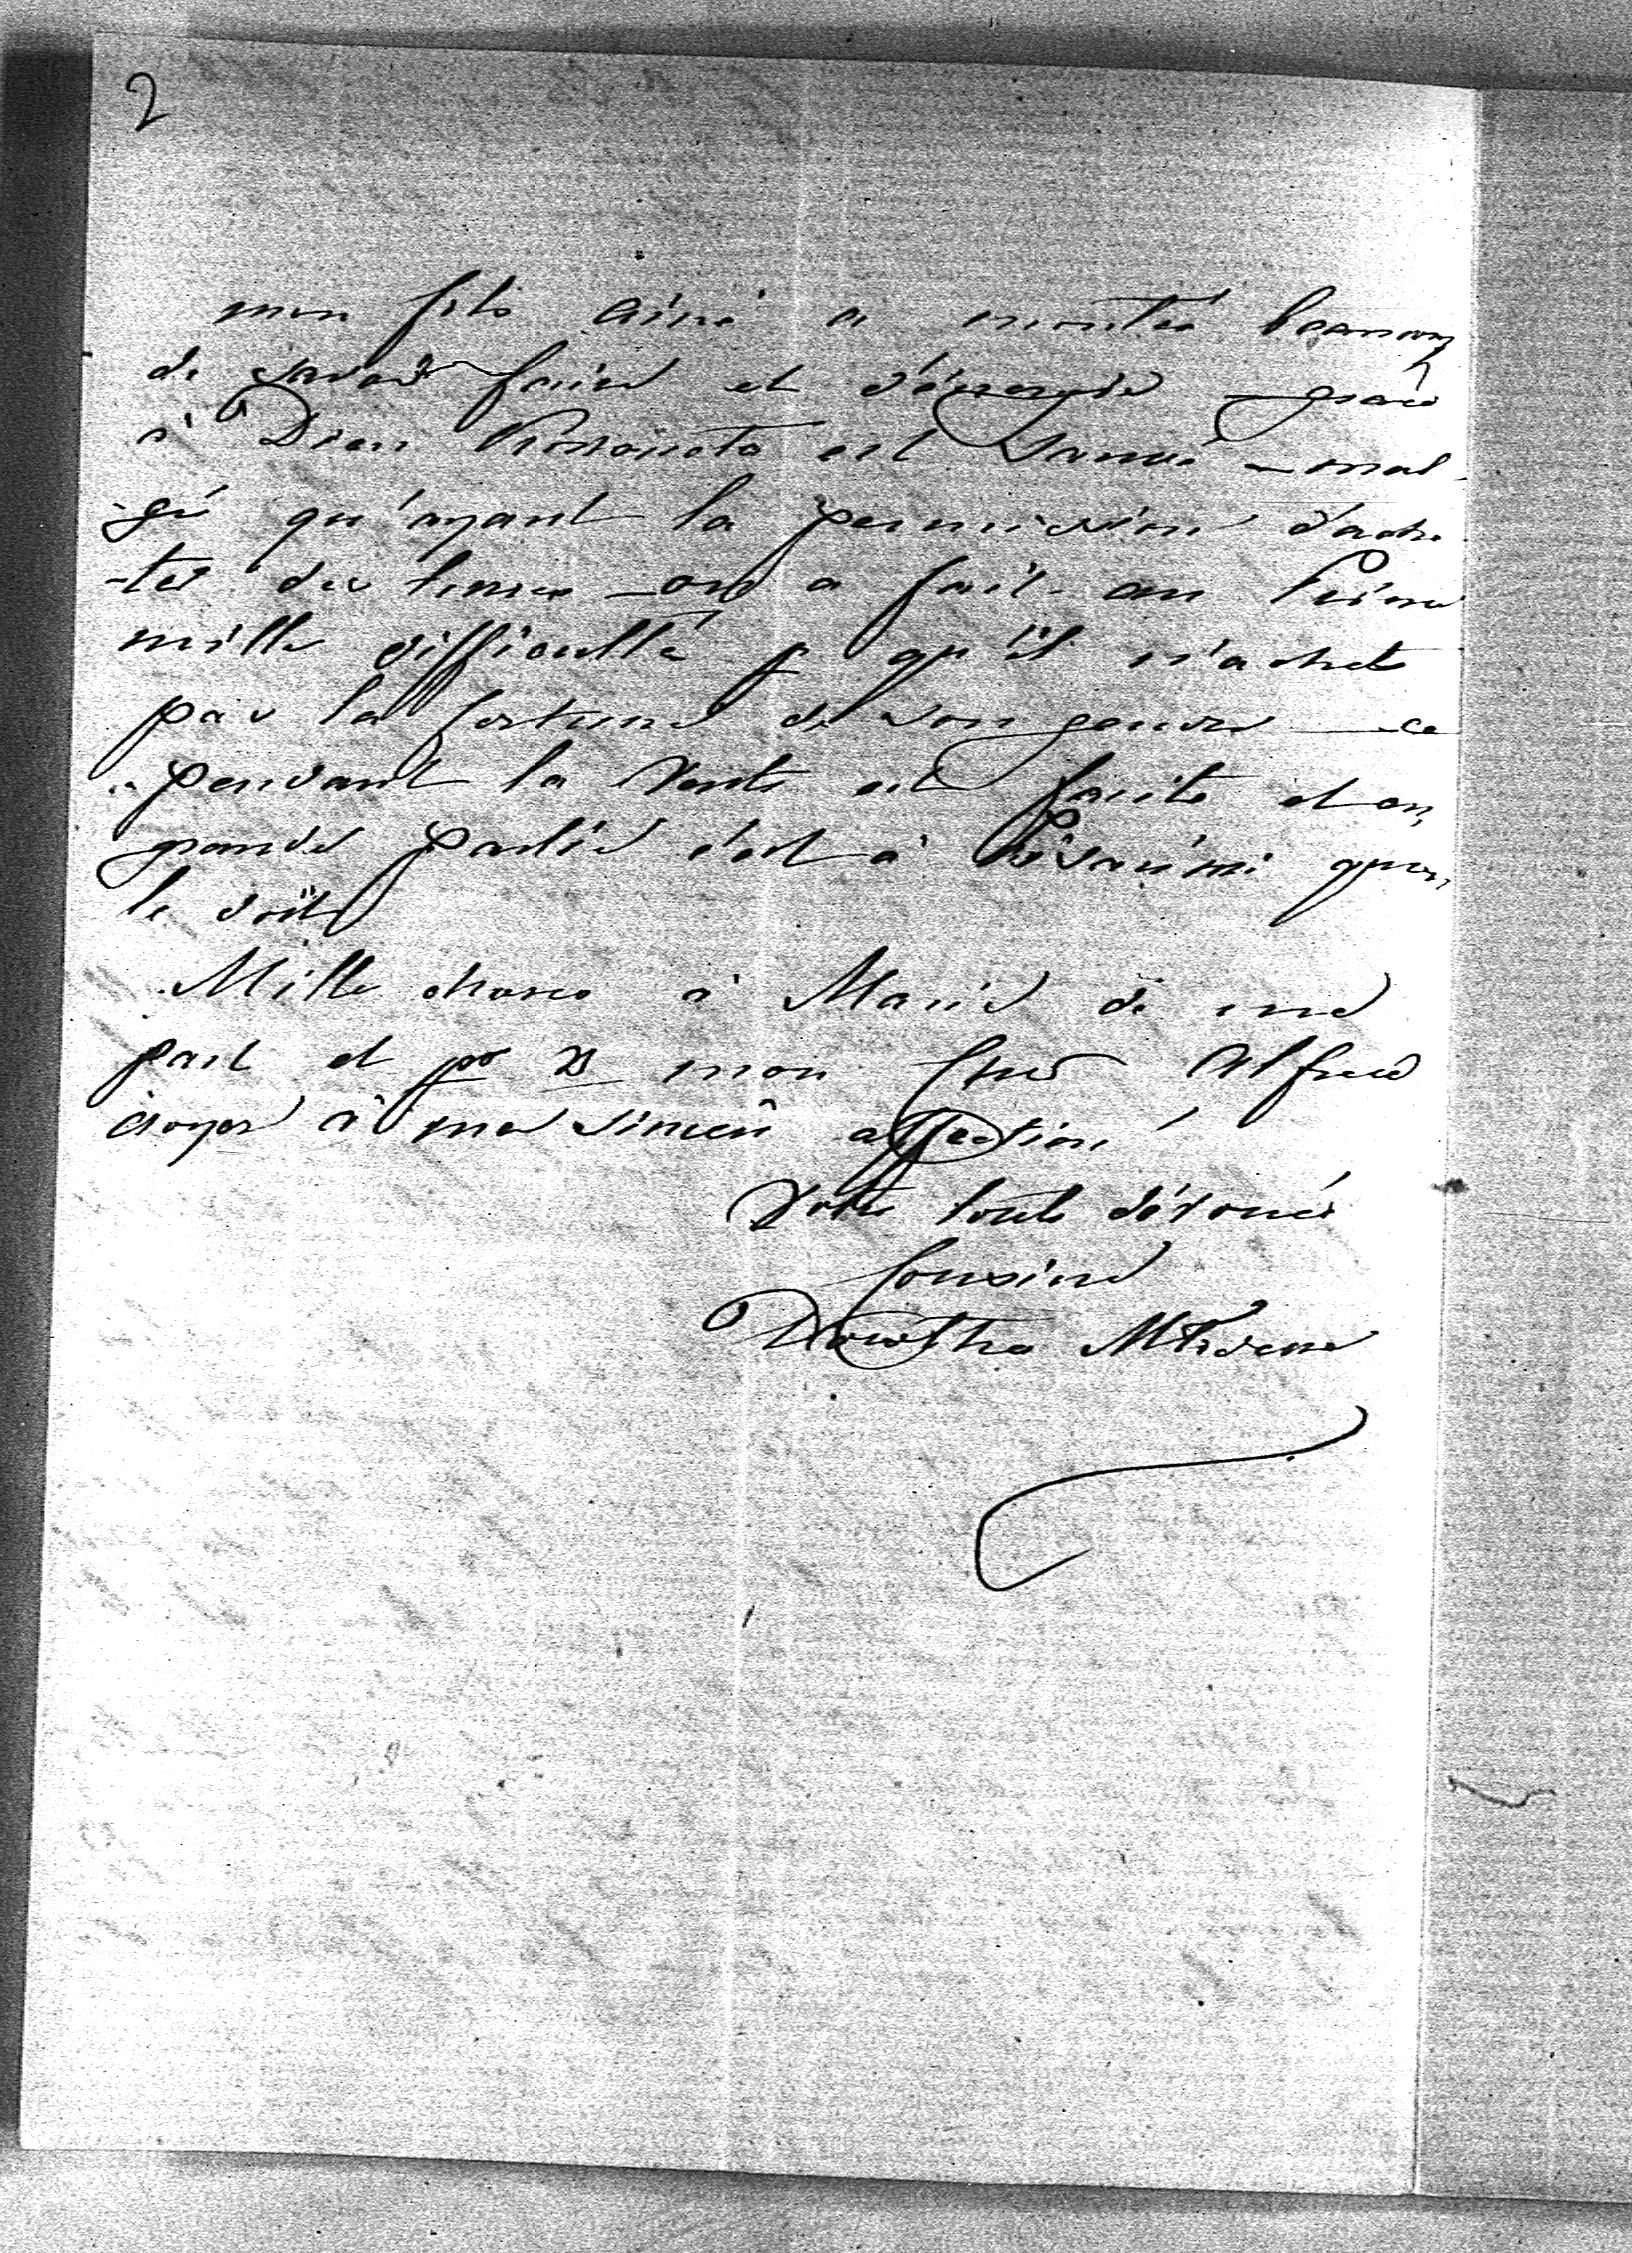 2
mon fils ainé a montré beaucoup
de savoir faire et d'énergie – grâce
à Dieu est sauvé – mal-
-gré qu'ayant la permission d'ache-
-ter des terres – on a fait au Prince
mille difficulté p qu'il n'achete
pas la fortune de son gendre – ce
-pendant la vente est faite et en
grande partie c'est à que
le doit
Mille choses à Marie de ma
part et pr vs mon cher Alfred
croyez à ma sincère affection
Votre toute dévouée
Cousine